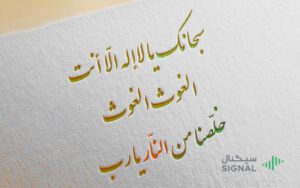 سبحانک یا لا إله الّا أنت
الغوث الغوث
خلّصنا من النّار یا رب
سیگنال
SIGNAL